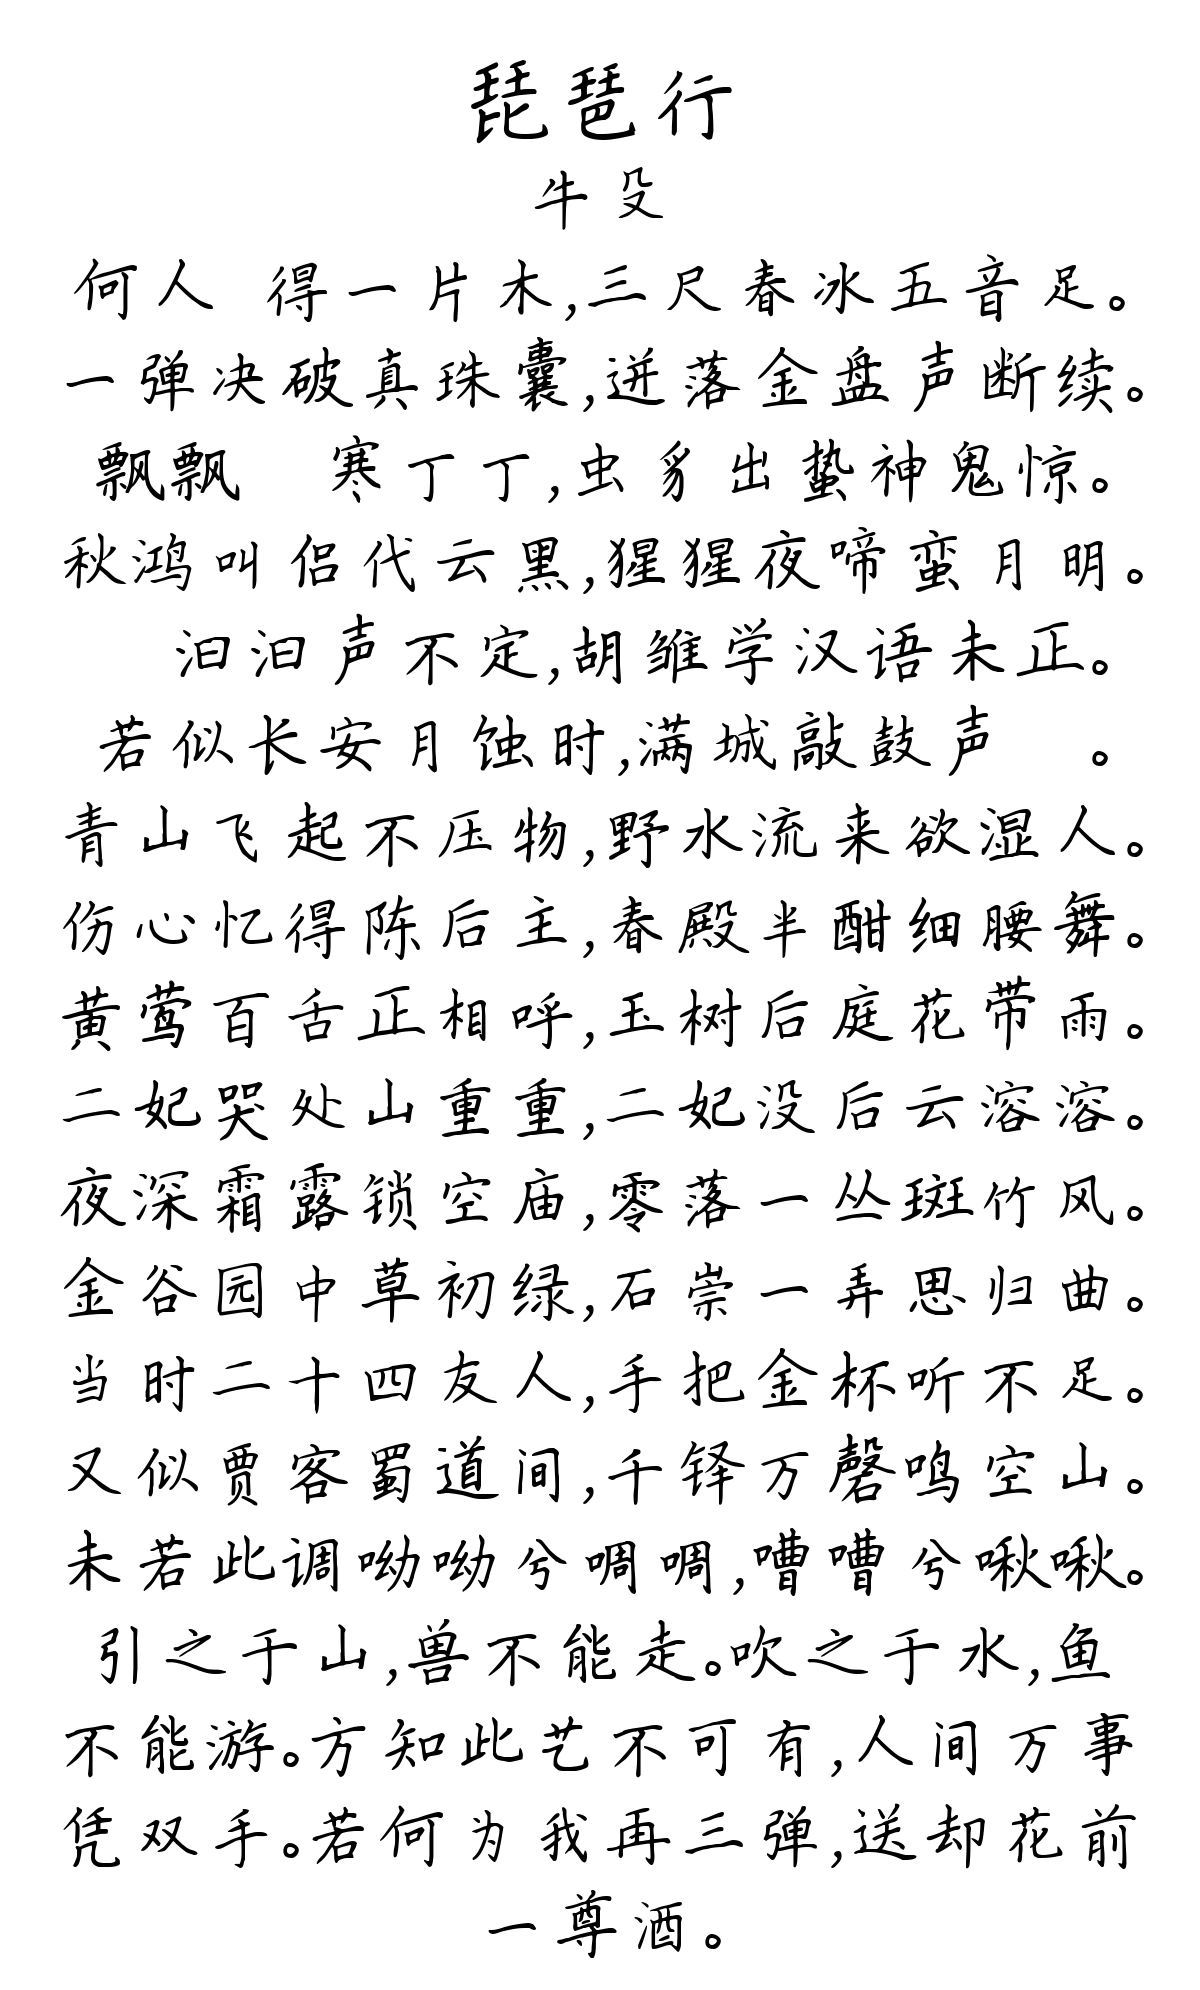 琵琶行
牛殳
何人 得一片木,三尺春冰五音足。
一弹决破真珠囊,迸落金盘声断续。
飘飘 寒丁丁,虫豸出蛰神鬼惊。
秋鸿叫侣代云黑,猩猩夜啼蛮月明。
汩汩声不定,胡雏学汉语未正。
若似长安月蚀时,满城敲鼓声 。
青山飞起不压物,野水流来欲湿人。
伤心忆得陈后主,春殿半酣细腰舞。
黄莺百舌正相呼,玉树后庭花带雨。
二妃哭处山重重,二妃没后云溶溶。
夜深霜露锁空庙,零落一丛斑竹风。
金谷园中草初绿,石崇一弄思归曲。
当时二十四友人,手把金杯听不足。
又似贾客蜀道间,千铎万磬鸣空山。
未若此调呦呦兮啁啁,嘈嘈兮啾啾。
引之于山,兽不能走。吹之于水,鱼
不能游。方知此艺不可有,人间万事
凭双手。若何为我再三弹,送却花前
一尊酒。